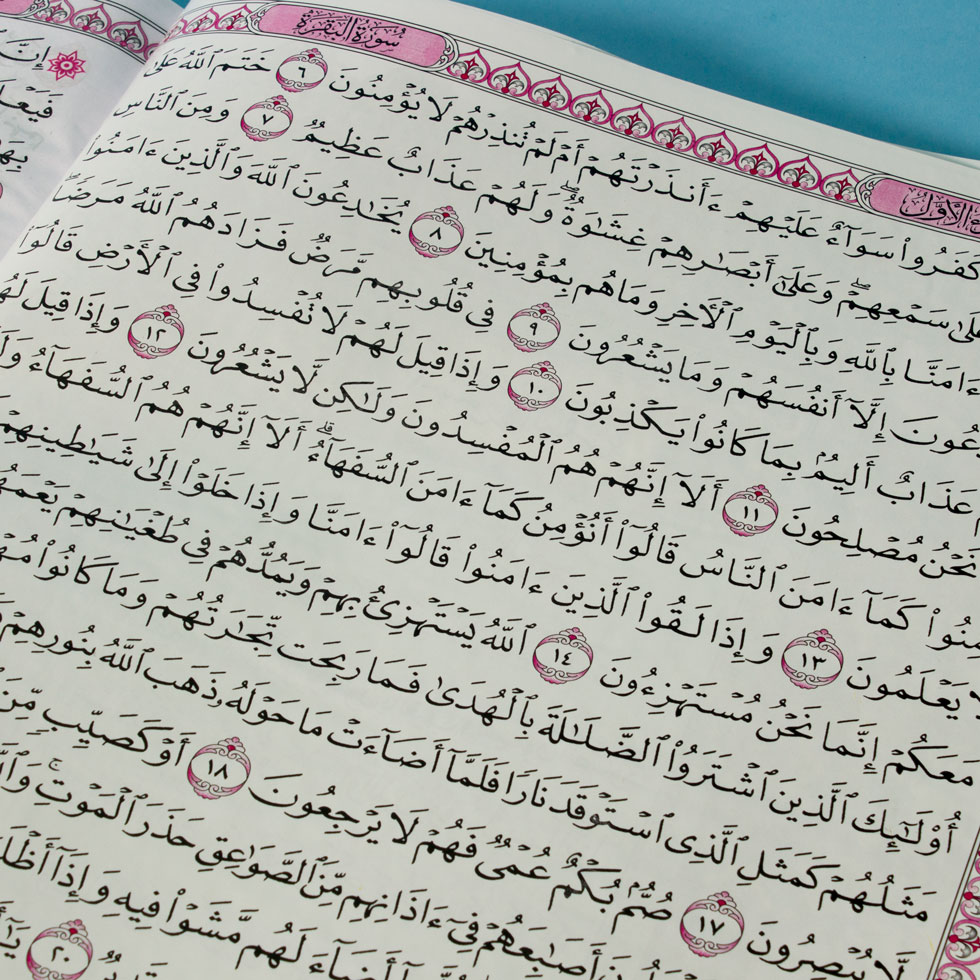 سُورَةُ البَقَرَةِ
كَفَرُوا۟ سَوَآءٌ عَلَيْهِمْ ءَأَنذَرْتَهُمْ أَمْ لَمْ تُنذِرْهُمْ لَا يُؤْمِنُونَ ٦ خَتَمَ ٱللَّهُ عَلَىٰ
سَمْعِهِمْ ۖ وَعَلَىٰٓ أَبْصَٰرِهِمْ غِشَٰوَةٌ ۖ وَلَهُمْ عَذَابٌ عَظِيمٌ ٧ وَمِنَ ٱلنَّاسِ
ءَامَنَّا بِٱللَّهِ وَبِٱلْيَوْمِ ٱلْءَاخِرِ وَمَا هُم بِمُؤْمِنِينَ ٨ يُخَٰدِعُونَ ٱللَّهَ وَٱلَّذِينَ ءَامَنُوا۟
إِلَّآ أَنفُسَهُمْ وَمَا يَشْعُرُونَ ٩ فِى قُلُوبِهِم مَّرَضٌ فَزَادَهُمُ ٱللَّهُ مَرَضًا ۖ
عَذَابٌ أَلِيمٌۢ بِمَا كَانُوا۟ يَكْذِبُونَ ١٠ وَإِذَا قِيلَ لَهُمْ لَا تُفْسِدُوا۟ فِى ٱلْأَرْضِ قَالُوٓا۟
نَحْنُ مُصْلِحُونَ ١١ أَلَآ إِنَّهُمْ هُمُ ٱلْمُفْسِدُونَ وَلَٰكِن لَّا يَشْعُرُونَ ١٢ وَإِذَا قِيلَ
كَمَآ ءَامَنَ ٱلنَّاسُ قَالُوٓا۟ أَنُؤْمِنُ كَمَآ ءَامَنَ ٱلسُّفَهَآءُ ۗ أَلَآ إِنَّهُمْ هُمُ ٱلسُّفَهَآءُ
يَعْلَمُونَ ١٣ وَإِذَا لَقُوا۟ ٱلَّذِينَ ءَامَنُوا۟ قَالُوٓا۟ ءَامَنَّا وَإِذَا خَلَوْا۟ إِلَىٰ شَيَٰطِينِهِمْ
مَعَكُمْ إِنَّمَا نَحْنُ مُسْتَهْزِءُونَ ١٤ ٱللَّهُ يَسْتَهْزِئُ بِهِمْ وَيَمُدُّهُمْ فِى طُغْيَٰنِهِمْ
أُو۟لَٰٓئِكَ ٱلَّذِينَ ٱشْتَرَوُا۟ ٱلضَّلَٰلَةَ بِٱلْهُدَىٰ فَمَا رَبِحَت تِّجَٰرَتُهُمْ وَمَا كَانُوا۟
مَثَلُهُمْ كَمَثَلِ ٱلَّذِى ٱسْتَوْقَدَ نَارًا فَلَمَّآ أَضَآءَتْ مَا حَوْلَهُۥ ذَهَبَ ٱللَّهُ بِنُورِهِمْ
لَّا يُبْصِرُونَ ١٧ صُمٌّۢ بُكْمٌ عُمْىٌ فَهُمْ لَا يَرْجِعُونَ ١٨ أَوْ كَصَيِّبٍ مِّنَ
أَصَٰبِعَهُمْ فِىٓ ءَاذَانِهِم مِّنَ ٱلصَّوَٰعِقِ حَذَرَ ٱلْمَوْتِ ۚ
لَهُم مَّشَوْا۟ فِيهِ وَإِذَآ
٢٠